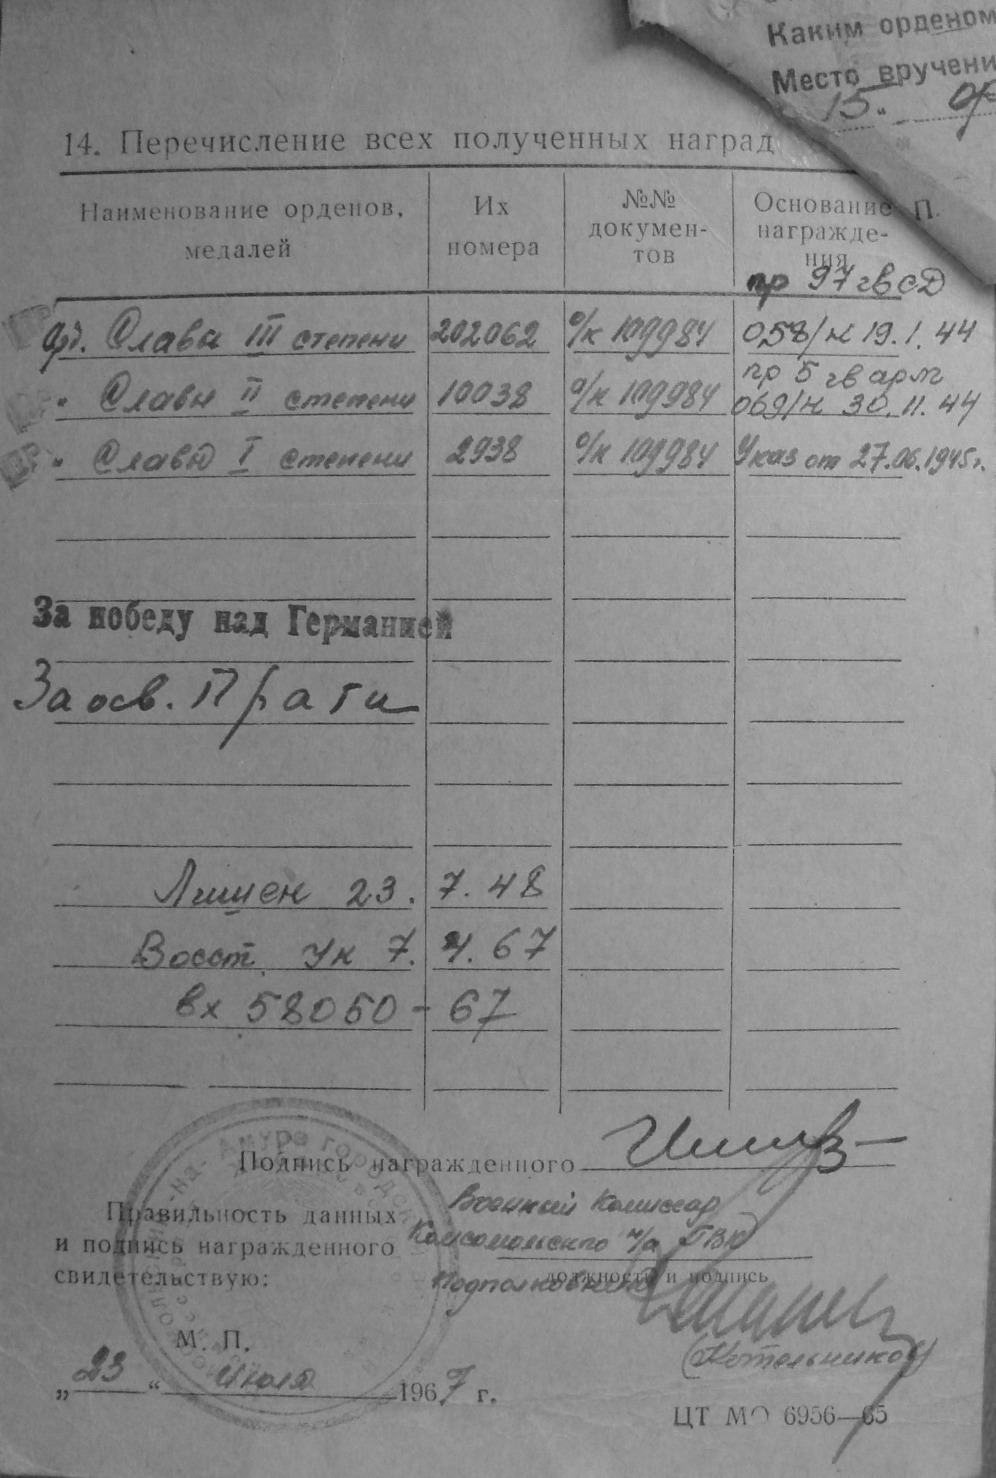 Каким орденом
Место вручени
15.
14. Перечисление всех полученных наград
Наименование орденов, медалей
Их номера
№№ докумен-тов
Основание награжде-ния
пр 97 гв сД
Орд. Слава III степени 202062 о/к 109984 058/н 19.1.44
пр 5 гв арм
" Славы II степени 10038 о/к 109984 069/н 30.11.44
" Славы I степени 2938 о/к 109984 Указ от 27.06.1945г.
За победу над Германией
За осв. Праги
Лишен 23. 7. 48
Восст. Ук 7. 4. 67
вх 58050 - 67
Подпись награжденного
Правильность данных
и подпись награжденного
свидетельствую:
Военный Комиссар
Комсомольского н/а ГВК
должность и подпись
Подполковник
(Котельников)
М. П.
„23“ июля 1967 г.
ЦТ МО 6956—65